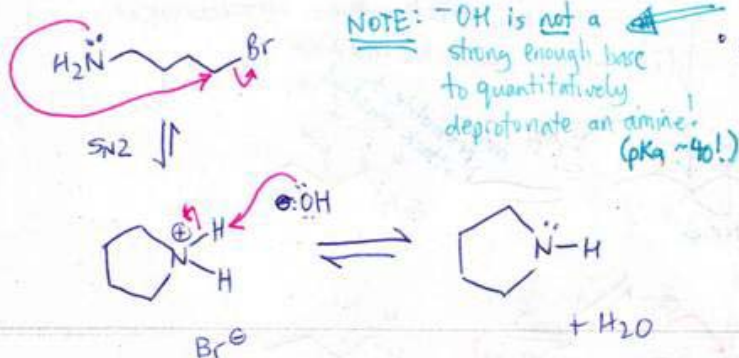 NOTE: ⁻OH is not a
strong enough base
to quantitatively
deprotonate an amine!
(pKa ~40!)
H₂N̈
Br
SN2
⊕
N
H
H
⊖:ÖH
N̈—H
+ H₂O
Br⊖